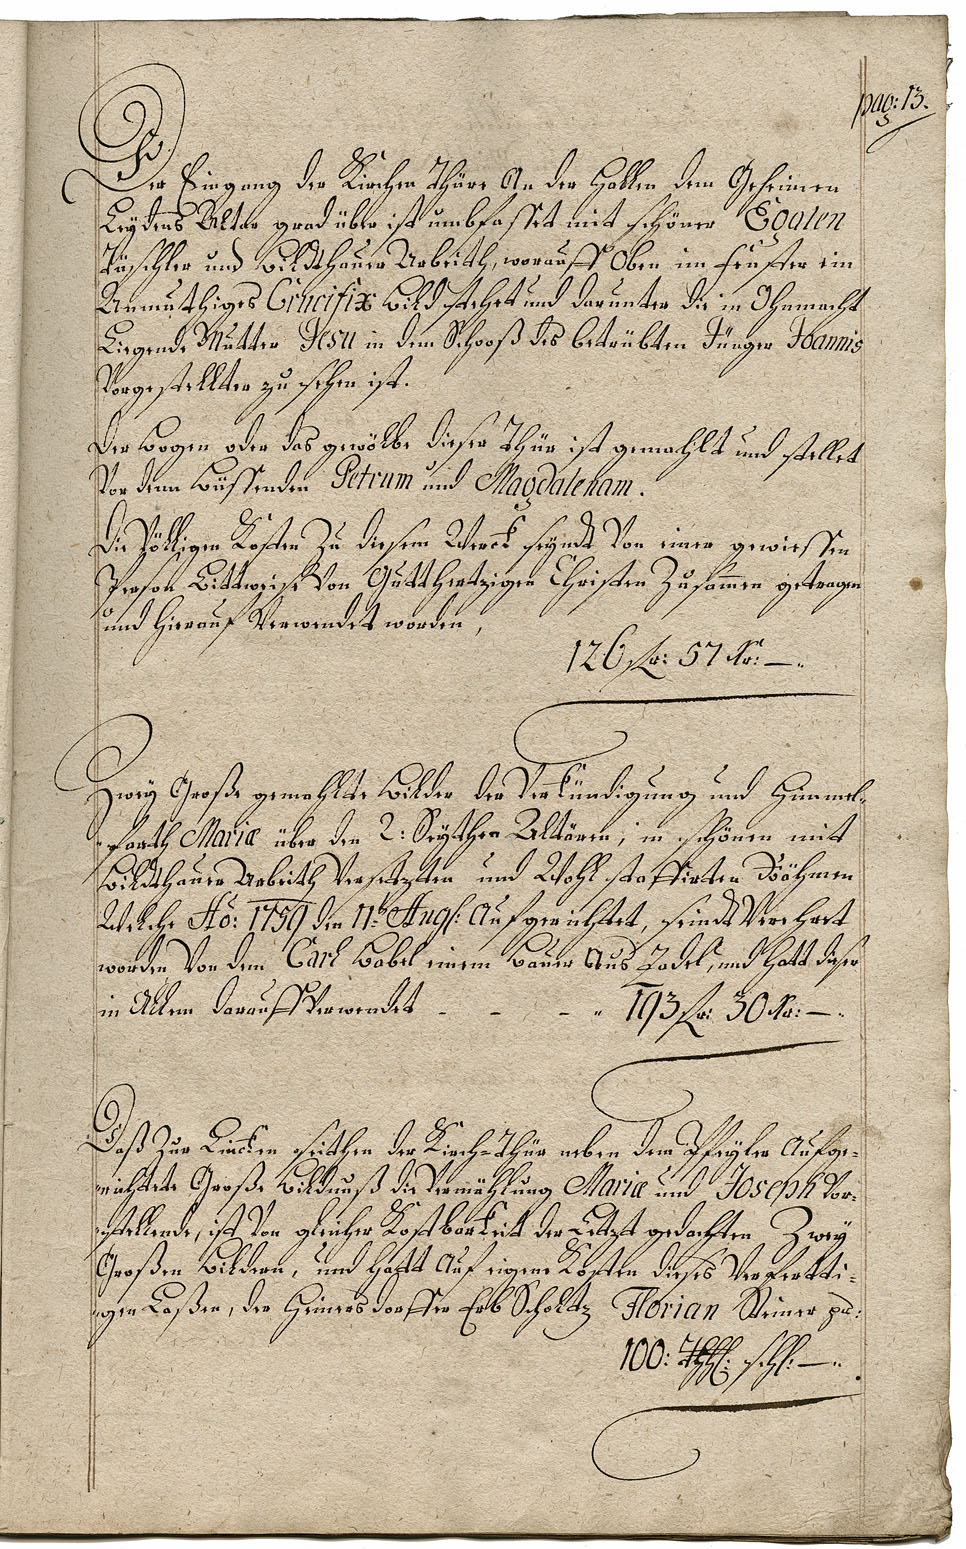 pag: 13.
Der Eingang der Kirchen Thüre An der Hallen dem Geheimen
Leydens Altar gradüber ist umbfasset mit schöner Egalen
Tüschler und Bildthauer Arbeith, worauff Oben im Fenster ein
Anmuthiges Crucifix Bild stehet und darunter die in Ohnmacht
Liegende Mutter Jesu in dem Schooß des betrübten Jünger Joannis
Vorgestellter zu sehen ist.
Der Bogen oder das gewölbe dieser Thür ist gemahlt und stellet
Vor denn Büssenden Petrum und Magdalenam.
Die Völligen Kosten Zu diesem Werck seyndt Von einer gewiessen
Person Bittweise Von Gutthertzigen Christen Zusam̄en getragen
und hierauf Verwendet worden,
126 flr: 57 Kr: —.
Zwey Große gemahlte Bilder der Verkündigung und Himmel-
-farth Mariæ über den 2: Seythen Altären, in schönen mit
Bildthauer Arbeith Versetzten und Wohl staffirten Röhmen
Welche Aõ: 1759 den 11t Aug: Aufgerichtet, seindt Verehret
worden Von dem Carl Babel einem Bauer Aus Zadel, und hatt dieser
in Allem darauff Verwendet - - - - 193 flr: 30 Kr: —.
Daß Zur Lincken seithen der Kirch-Thür neben dem Pfeyler Aufge-
-richtete Große Bildnuß die Vermählung Mariæ und Joseph Vor-
-stellende, ist Von gleicher Kostbarkeit der Letzt gedachten Zwey
Großen Bildern, und hatt Auf eigene Kosten dieses Verfertti-
-gen Laßen, der Heinersdorffer Erb Scholtz Florian Steiner pr:
100: Thl: schl: —.